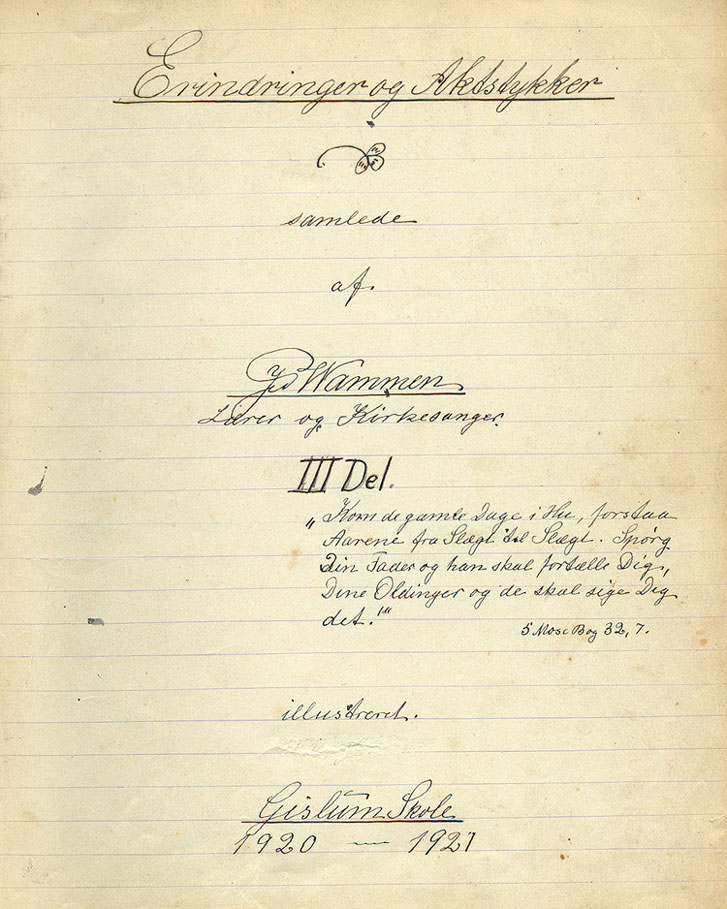 Erindringer og Aktstykker
samlede
af.
Wammen
Lærer og Kirkesanger.
III Del.
„Kom de gamle Dage i Hu, forstaa
Aarene fra Slægt til Slægt. Spörg
Din Fader og han skal fortælle Dig,
Dine Oldinger og de skal sige Dig
det!"
5 Mose Bog 32, 7.
illustreret.
Gislum Skole
1920 — 1921